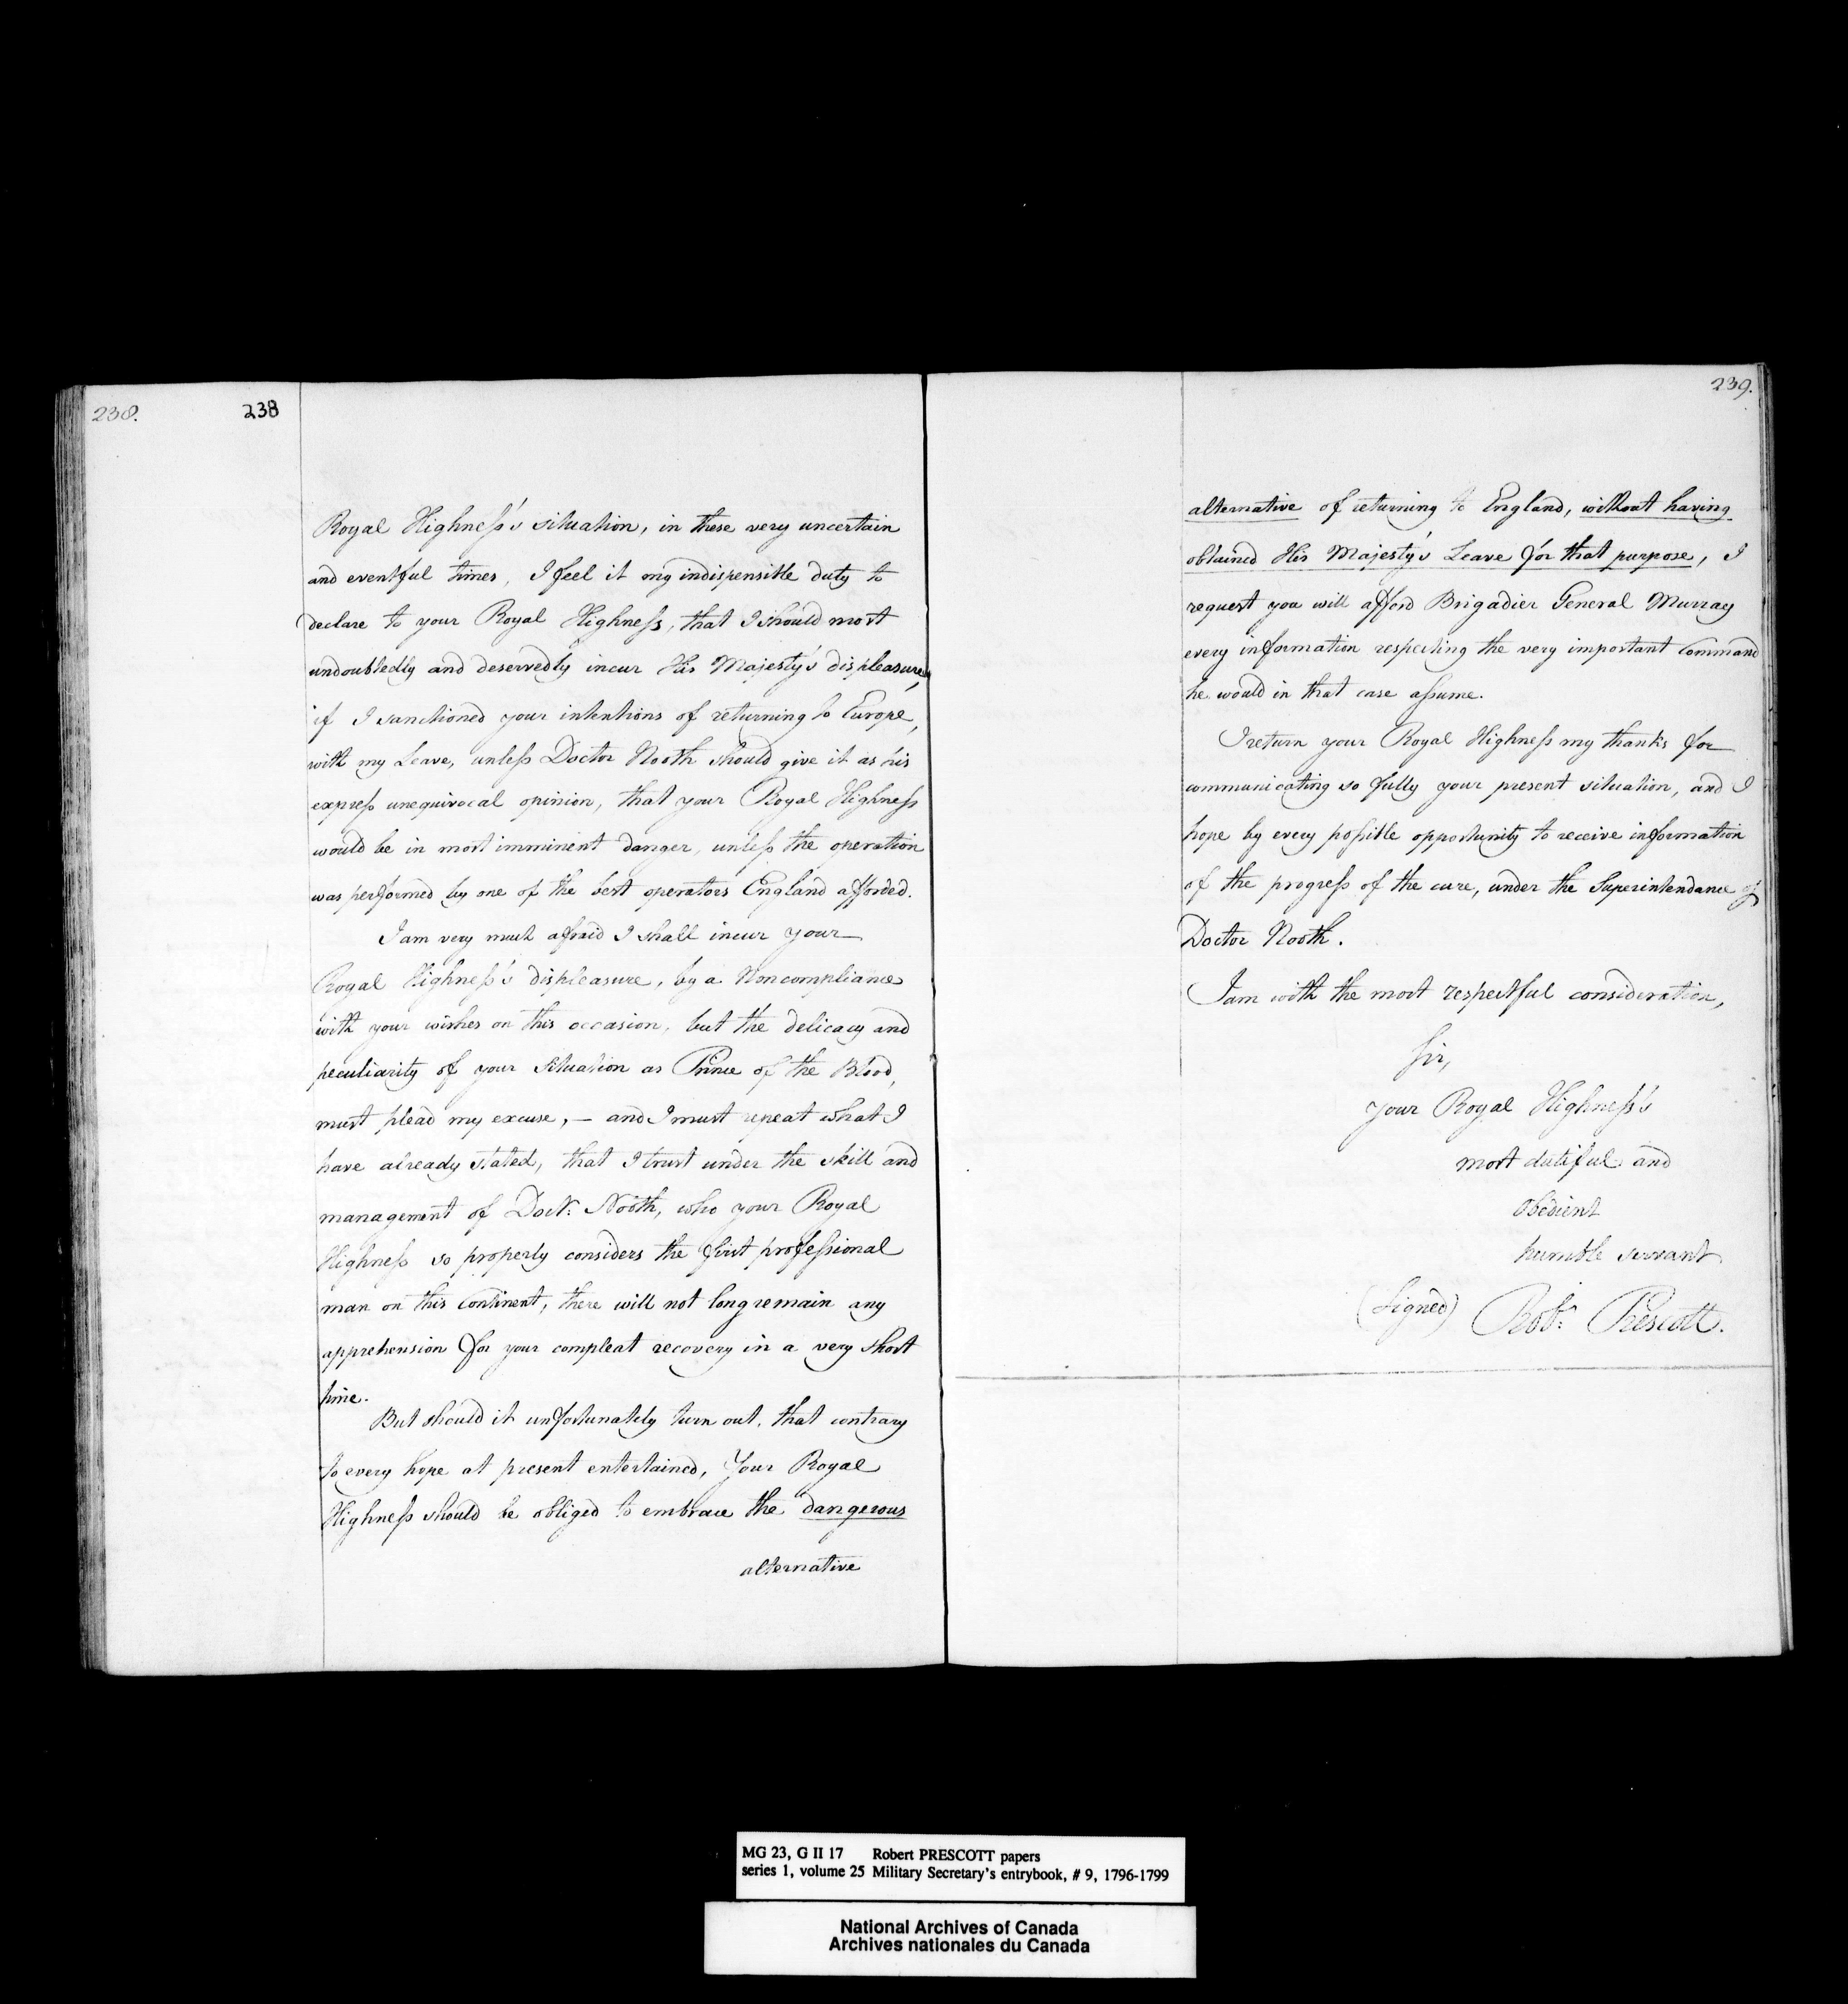 238.
238
Royal Highness's situation, in these very uncertain
and eventful times, I feel it my indispensible duty to
declare to your Royal Highness, that I should most
undoubtedly and deservedly incur His Majesty's displeasure,
if I sanctioned your intentions of returning to Europe,
with my Leave, unless Doctor Nooth should give it as his
express unequivocal opinion, that your Royal Highness
would be in most imminent danger, unless the operation
was performed by one of the best operators England afforded.
I am very much afraid I shall incur your
Royal Highness's displeasure, by a Noncompliance
with your wishes on this occasion, but the delicacy and
peculiarity of your situation as Prince of the Blood,
must plead my excuse, — and I must repeat what I
have already stated, that I trust under the skill and
management of Doctr. Nooth, who your Royal
Highness so properly considers the first professional
man on this Continent, there will not long remain any
apprehension for your compleat recovery in a very short
time.
But should it unfortunately turn out, that contrary
to every hope at present entertained, Your Royal
Highness should be obliged to embrace the dangerous
alternative
239.
alternative of returning to England, without having
obtained His Majesty's Leave for that purpose, I
request you will afford Brigadier General Murray
every information respecting the very important Command
he would in that case assume.
I return your Royal Highness my thanks for
communicating so fully your present situation, and I
hope by every possible opportunity to receive information
of the progress of the cure, under the Superintendance of
Doctor Nooth.
I am with the most respectful consideration,
Sir,
Your Royal Highness's
most dutiful and
obedient
humble servant
(Signed) Robt. Prescott.
MG 23, G II 17 Robert PRESCOTT papers
series 1, volume 25 Military Secretary's entrybook, # 9, 1796-1799
National Archives of Canada
Archives nationales du Canada